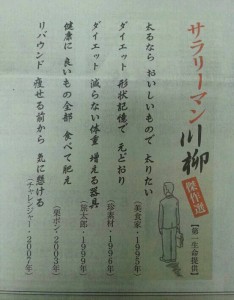 サラリーマン川柳
傑作選
【第一生命提供】
太るなら おいしいもので 太りたい
(美食家・1995年)
ダイエット 形状記憶で 元どおり
(珍素材・1996年)
ダイエット 減らない体重 増える器具
(1999年)
健康に 良いもの全部 食べて肥え
(薬ボマ・2003年)
リバウンド 痩せる前から 気に懸ける
(チャレンジャー・2007年)